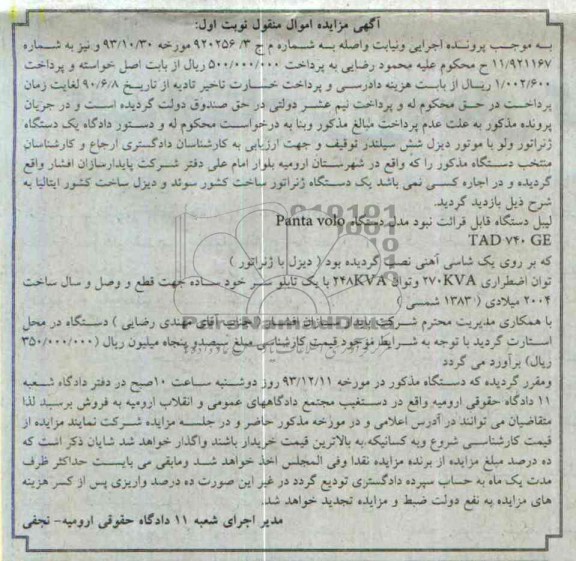 آگهی مزایده اموال منقول نوبت اول:
به موجب پرونده اجرایی ونیابت واصله به شماره م ج ۹۲۰۲۵۶/۳ مورخه ۹۳/۱۰/۳۰ و نیز به شماره
۱۱/۹۲۱۱۶۷ ح محکوم علیه محمود رضایی به پرداخت ۵۰۰/۰۰۰/۰۰۰ ریال از بابت اصل خواسته و پرداخت
۱/۰۰۲/۶۰۰ ریال از بابت هزینه دادرسی و پرداخت خسارت تاخیر تادیه از تاریخ ۹۰/۶/۸ لغایت زمان
پرداخت در حق محکوم له و پرداخت نیم عشر دولتی در حق صندوق دولت گردیده است و در جریان
پرونده مذکور به علت عدم پرداخت مبالغ مذکور وبنا به درخواست محکوم له و دستور دادگاه یک دستگاه
ژنراتور ولو با موتور دیزل شش سیلندر توقیف و جهت ارزیابی به کارشناسان دادگستری ارجاع و کارشناسان
منتخب دستگاه مذکور را که واقع در شهرستان ارومیه بلوار امام علی دفتر شرکت پایدارسازان افشار واقع
گردیده و در اجاره کسی نمی باشد یک دستگاه ژنراتور ساخت کشور سوئد و دیزل ساخت کشور ایتالیا به
شرح ذیل بازدید گردید.
لیبل دستگاه قابل قرائت نبود مدل دستگاه Panta volo
TAD ۷۴۰ GE
که بر روی یک شاسی آهنی نصب گردیده بود ( دیزل با ژنراتور )
توان اضطراری ۲۷۰KVA وتوان ۲۴۸KVA با یک تابلو سر خود ساده جهت قطع و وصل و سال ساخت
۲۰۰۴ میلادی (۱۳۸۳ شمسی )
با همکاری مدیریت محترم شرکت پایدار سازان افشار ( جناب آقای مهندی رضایی ) دستگاه در محل
استارت گردید با توجه به شرایط موجود قیمت کارشناسی مبلغ سیصدو پنجاه میلیون ریال (۳۵۰/۰۰۰/۰۰۰
ریال) برآورد می گردد
ومقرر گردیده که دستگاه مذکور در مورخه ۹۳/۱۲/۱۱ روز دوشنبه ساعت ۱۰صبح در دفتر دادگاه شعبه
۱۱ دادگاه حقوقی ارومیه واقع در دستغیب مجتمع دادگاههای عمومی و انقلاب ارومیه به فروش برسید لذا
متقاضیان می توانند در آدرس اعلامی و در موزخه مذکور حاضر و در جلسه مزایده شرکت نمایند مزایده از
قیمت کارشناسی شروع وبه کسانیکه به بالاترین قیمت خریدار باشند واگذار خواهد شد شایان ذکر است که
ده درصد مبلغ مزایده از برنده مزایده نقدا وفی المجلس اخذ خواهد شد ومابقی می بایست حداکثر ظرف
مدت یک ماه به حساب سپرده دادگستری تودیع گردد در غیر این صورت ده درصد واریزی پس از کسر هزینه
های مزایده به نفع دولت ضبط و مزایده تجدید خواهد شد.
مدیر اجرای شعبه ۱۱ دادگاه حقوقی ارومیه- نجفی